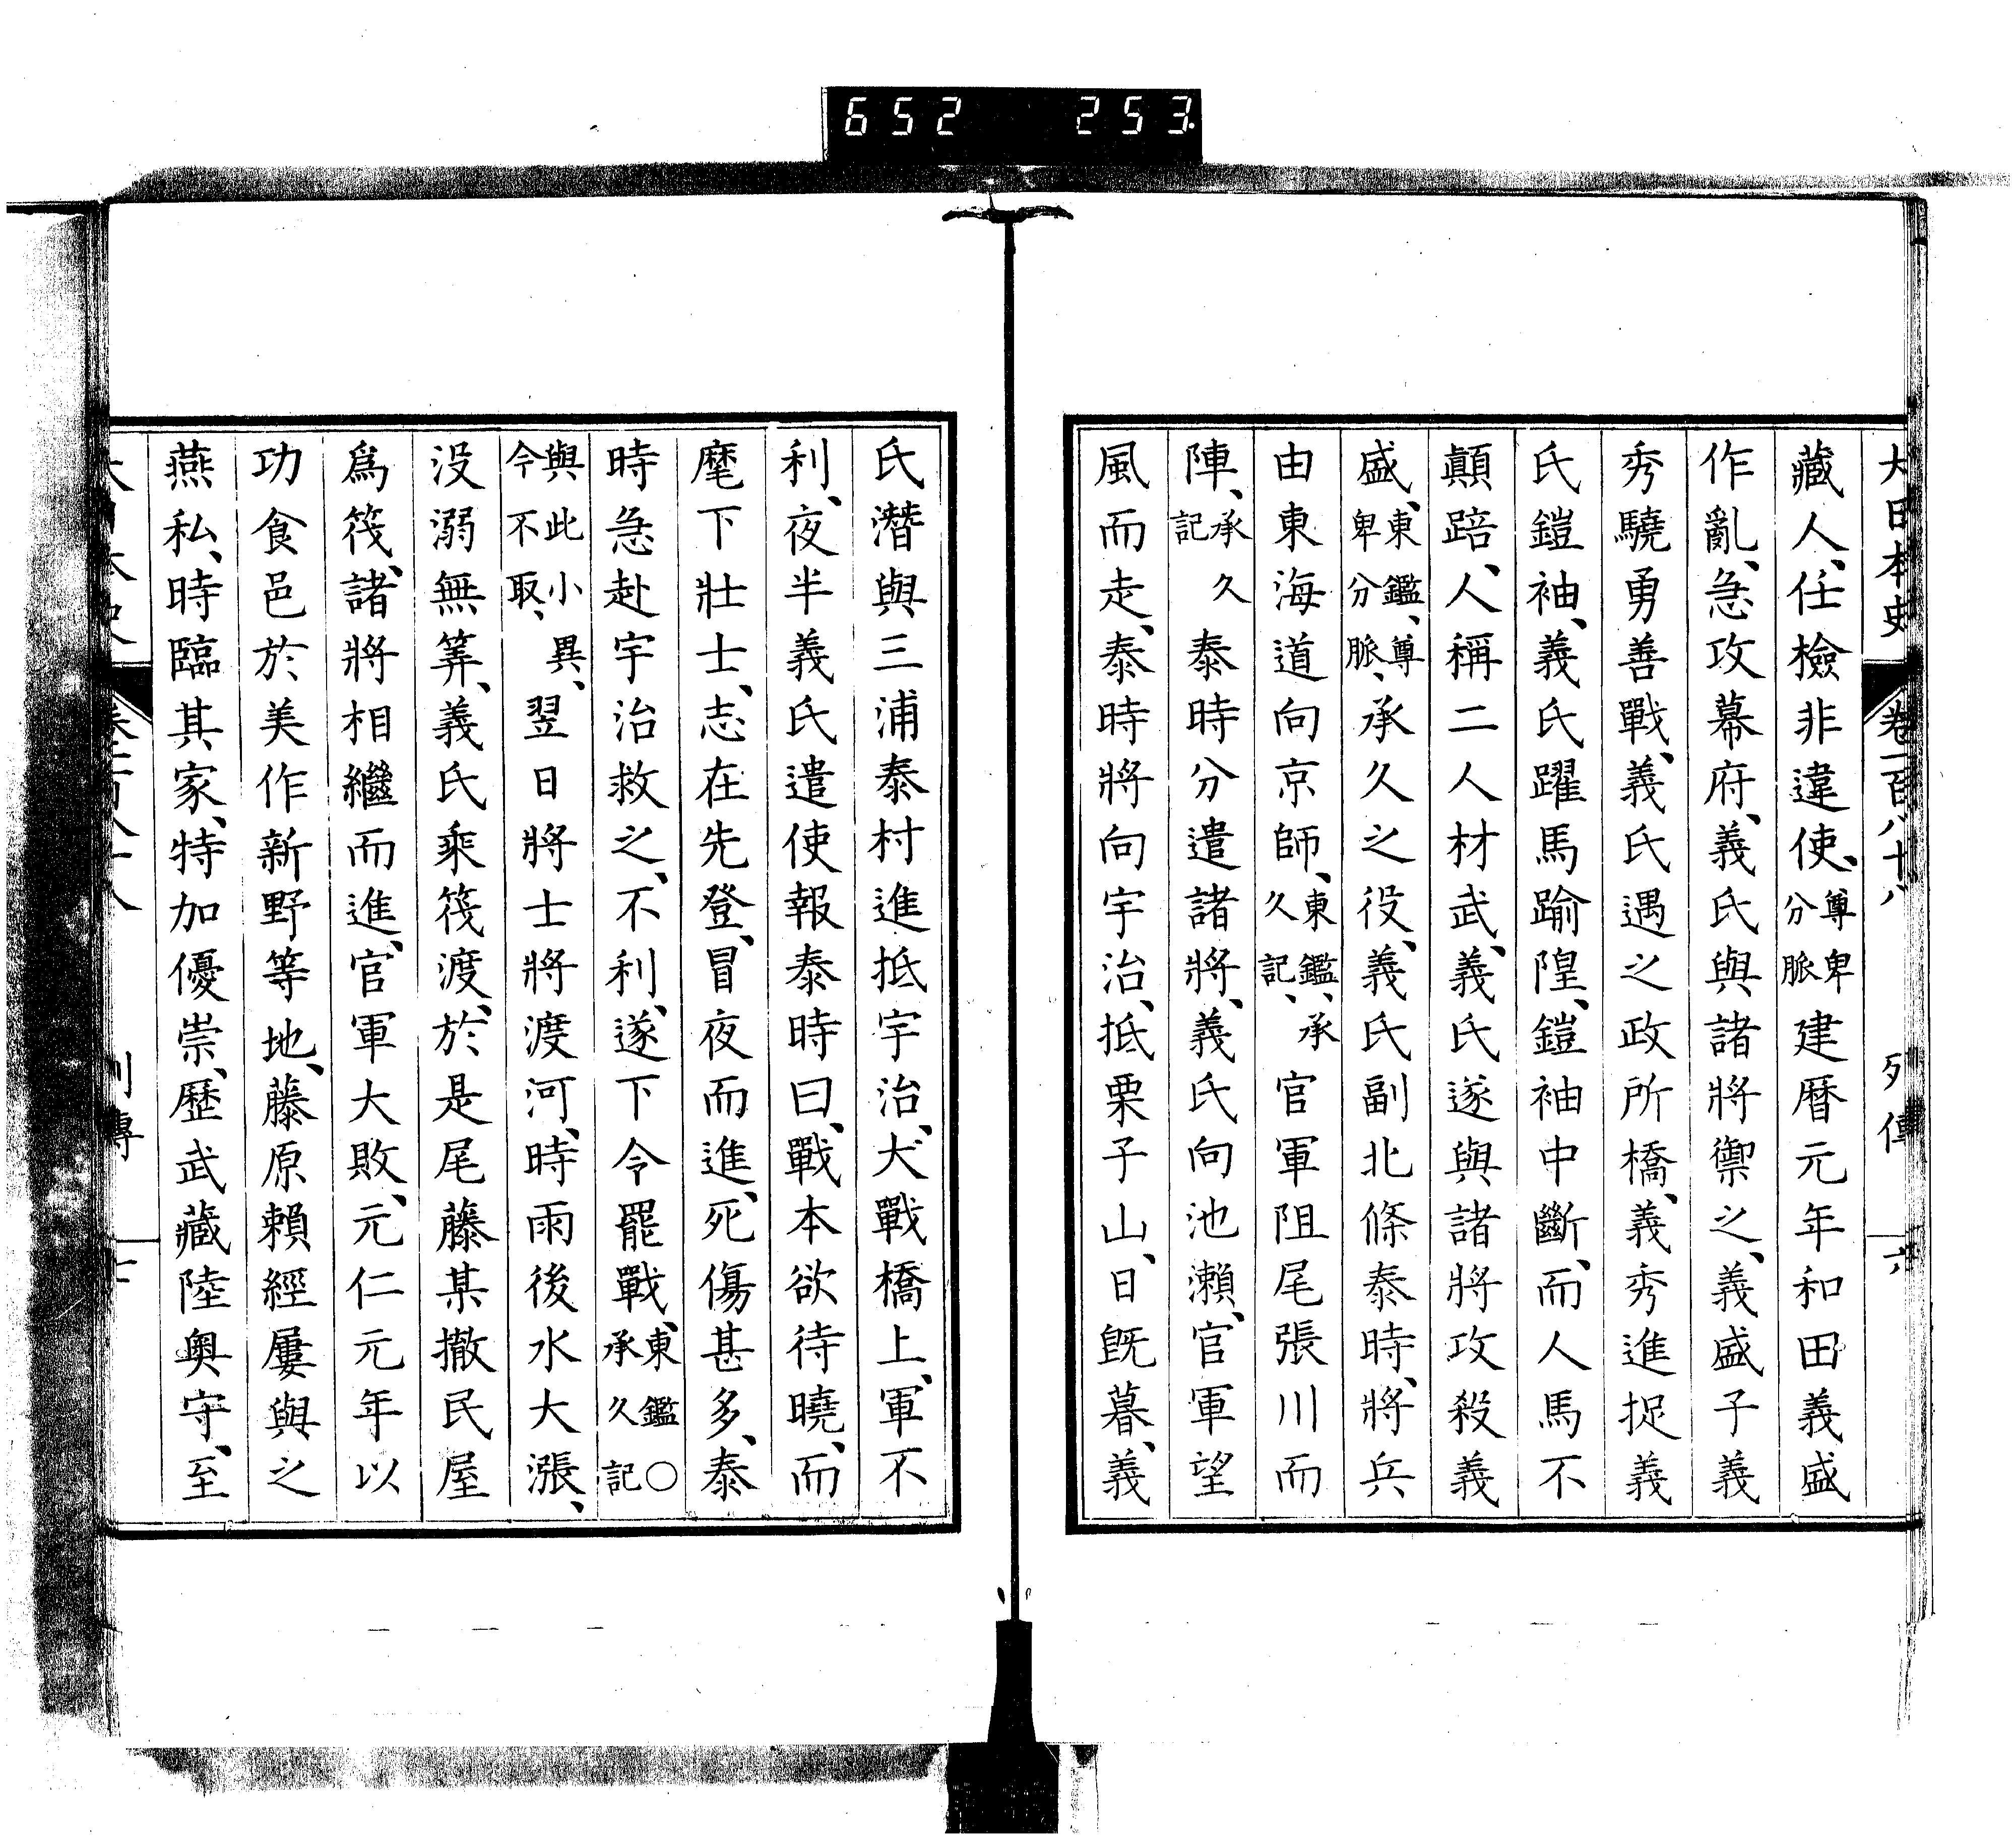 652 253.
大日本史 卷一百八十八 列傳 六
藏人、任檢非違使、尊卑分脈建曆元年和田義盛
作亂、急攻幕府、義氏與諸將禦之、義盛子義
秀驍勇善戰、義氏遇之政所橋、義秀進捉義
氏鎧袖、義氏躍馬踰隍、鎧袖中斷、而人馬不
顛踣、人稱二人材武、義氏遂與諸將攻殺義
盛、東鑑、尊卑分脈、承久之役、義氏副北條泰時、將兵
由東海道向京師、東鑑、承久記、官軍阻尾張川而
陣、承久記泰時分遣諸將、義氏向池瀨、官軍望
風而走、泰時將向宇治、抵栗子山、日既暮、義
氏潛與三浦泰村進抵宇治、犬戰橋上、軍不
利、夜半義氏遣使報泰時曰、戰本欲待曉、而
麾下壯士、志在先登、冒夜而進、死傷甚多、泰
時急赴宇治救之、不利、遂下令罷戰、東鑑〇承久記
與此小異、今不取、翌日將士將渡河、時雨後水大漲、
没溺無筭、義氏乘筏渡、於是尾藤某撤民屋
爲筏、諸將相繼而進、官軍大敗、元仁元年以
功食邑於美作新野等地、藤原賴經屢與之
燕私、時臨其家、特加優崇、歷武藏陸奧守、至